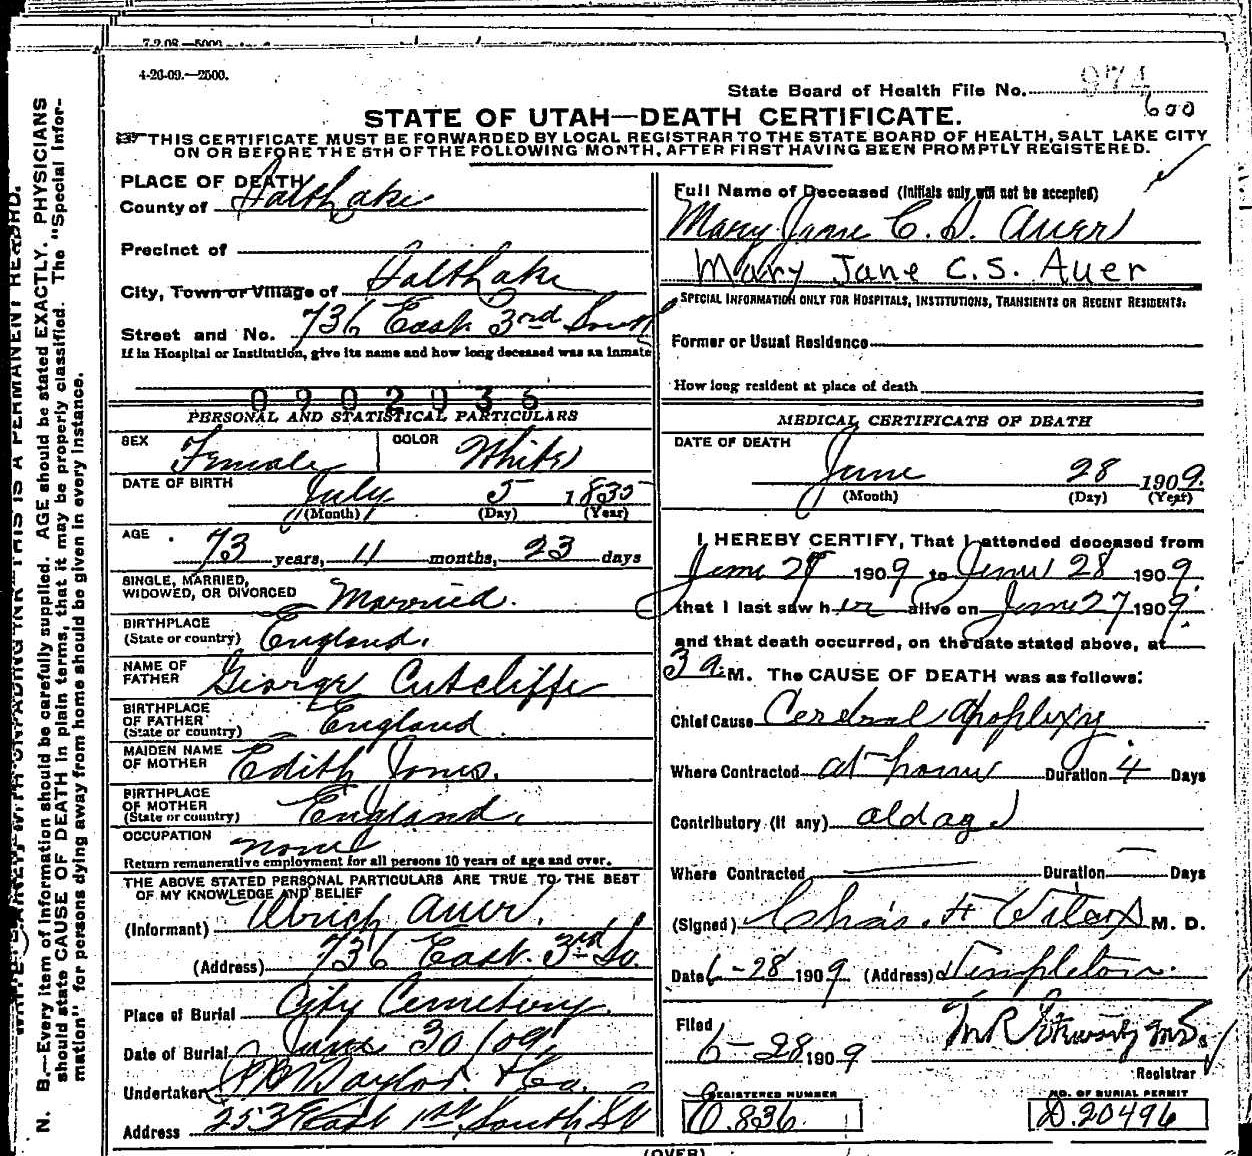 7-2-08—5000
4-20-09.—2500.
State Board of Health File No. 974
600
STATE OF UTAH—DEATH CERTIFICATE.
THIS CERTIFICATE MUST BE FORWARDED BY LOCAL REGISTRAR TO THE STATE BOARD OF HEALTH, SALT LAKE CITY
ON OR BEFORE THE 5TH OF THE FOLLOWING MONTH, AFTER FIRST HAVING BEEN PROMPTLY REGISTERED.
PLACE OF DEATH
County of Salt Lake
Precinct of
City, Town or Village of Salt Lake
Street and No. 736 East 3rd South
If in Hospital or Institution, give its name and how long deceased was an inmate
0902035
PERSONAL AND STATISTICAL PARTICULARS
SEX Female COLOR White
DATE OF BIRTH July 5 1835
(Month) (Day) (Year)
AGE 73 years, 11 months, 23 days
SINGLE, MARRIED,
WIDOWED, OR DIVORCED Married.
BIRTHPLACE
(State or country) England.
NAME OF
FATHER George Cutcliffe
BIRTHPLACE
OF FATHER
(State or country) England
MAIDEN NAME
OF MOTHER Edith Jones.
BIRTHPLACE
OF MOTHER
(State or country) England.
OCCUPATION none
Return remunerative employment for all persons 10 years of age and over.
THE ABOVE STATED PERSONAL PARTICULARS ARE TRUE TO THE BEST
OF MY KNOWLEDGE AND BELIEF
(Informant) Ulrich Auer.
(Address) 736 East. 3rd So.
Place of Burial City Cemetery.
Date of Burial June 30/09
Undertaker Taylor & Co.
Address 253 East 1st South St
Full Name of Deceased (Initials only will not be accepted)
Mary Jane C. S. Auer
Mary Jane C.S. Auer
SPECIAL INFORMATION ONLY FOR HOSPITALS, INSTITUTIONS, TRANSIENTS OR RECENT RESIDENTS:
Former or Usual Residence
How long resident at place of death
MEDICAL CERTIFICATE OF DEATH
DATE OF DEATH
June 28 1909.
(Month) (Day) (Year)
I HEREBY CERTIFY, That I attended deceased from
June 1909 to June 28 1909
that I last saw her alive on June 27 1909
and that death occurred, on the date stated above, at
3 a. M. The CAUSE OF DEATH was as follows:
Chief Cause Cerebral Apoplexy
Where Contracted at home Duration 4 Days
Contributory (if any) old age
Where Contracted Duration Days
(Signed) Chas. F Wilcox M. D.
Date 6-28 1909 (Address) Templeton.
Filed
6-28 1909
Registrar
REGISTERED NUMBER
O.836
NO. OF BURIAL PERMIT
D.20496
(OVER)
N. B.—Every item of information should be carefully supplied. AGE should be stated EXACTLY. PHYSICIANS
should state CAUSE OF DEATH in plain terms, that it may be properly classified. The "Special Infor-
mation" for persons dying away from home should be given in every instance.
THIS IS A PERMANENT RECORD.